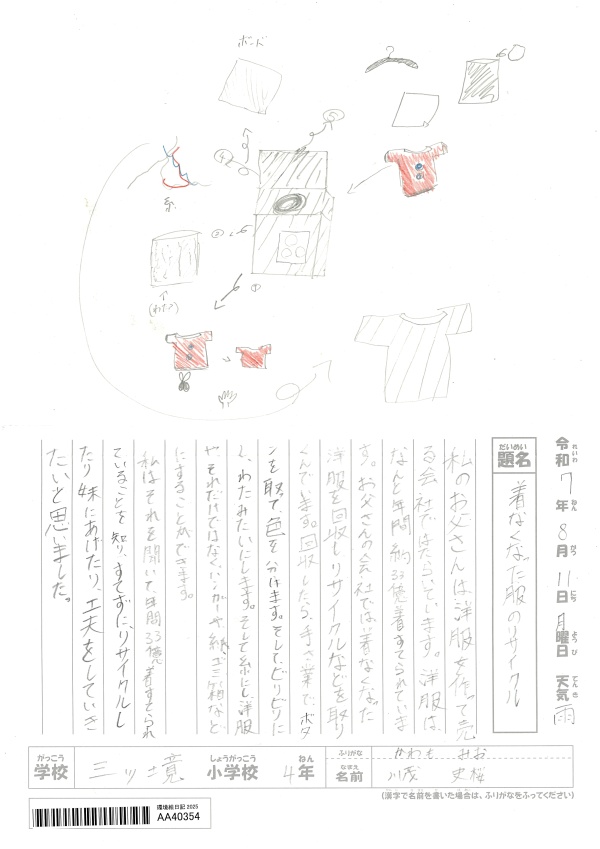 ボンド
糸
①
②
④
⑤
(わた?)
令和7年8月11日月曜日 天気 雨
れいわ ねん がつ にち ようび てんき
だいめい
題名
着なくなった服のリサイクル
私のお父さんは洋服を作って売
る会社ではたらいています。洋服は、
なんと年間約33億着すてられていま
す。お父さんの会社では着なくなった
洋服を回収しリサイクルなどを取り
くんでいます。回収したら、手さ業で、ボタ
ンを取って、色を分けます。そして、ビリビリに
し、わたみたいにします。そして糸にし、洋服
や、それだけではなく、ハンガーや紙、ゴミ箱など
にすることができます。
私はそれを聞いて、年間33億着すてられ
ていることを知り、すてずに、リサイクルし
たり妹にあげたり、工夫をしていき
たいと思いました。
がっこう
学校
三ッ境
しょうがっこう
小学校
4
ねん
年
ふりがな
かわも みお
なまえ
名前
川茂 史桜
(漢字で名前を書いた場合は、ふりがなをふってください)
環境絵日記 2025
AA40354